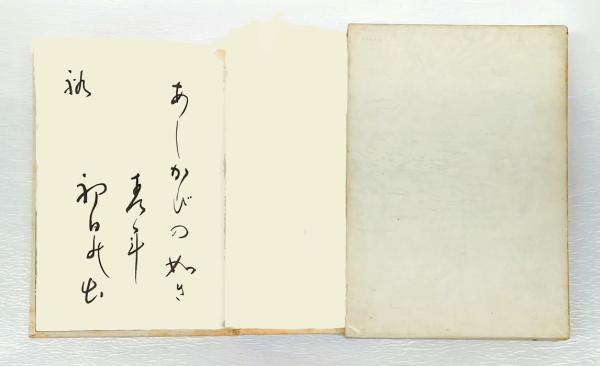 あしかびの如き
青年
初日の出